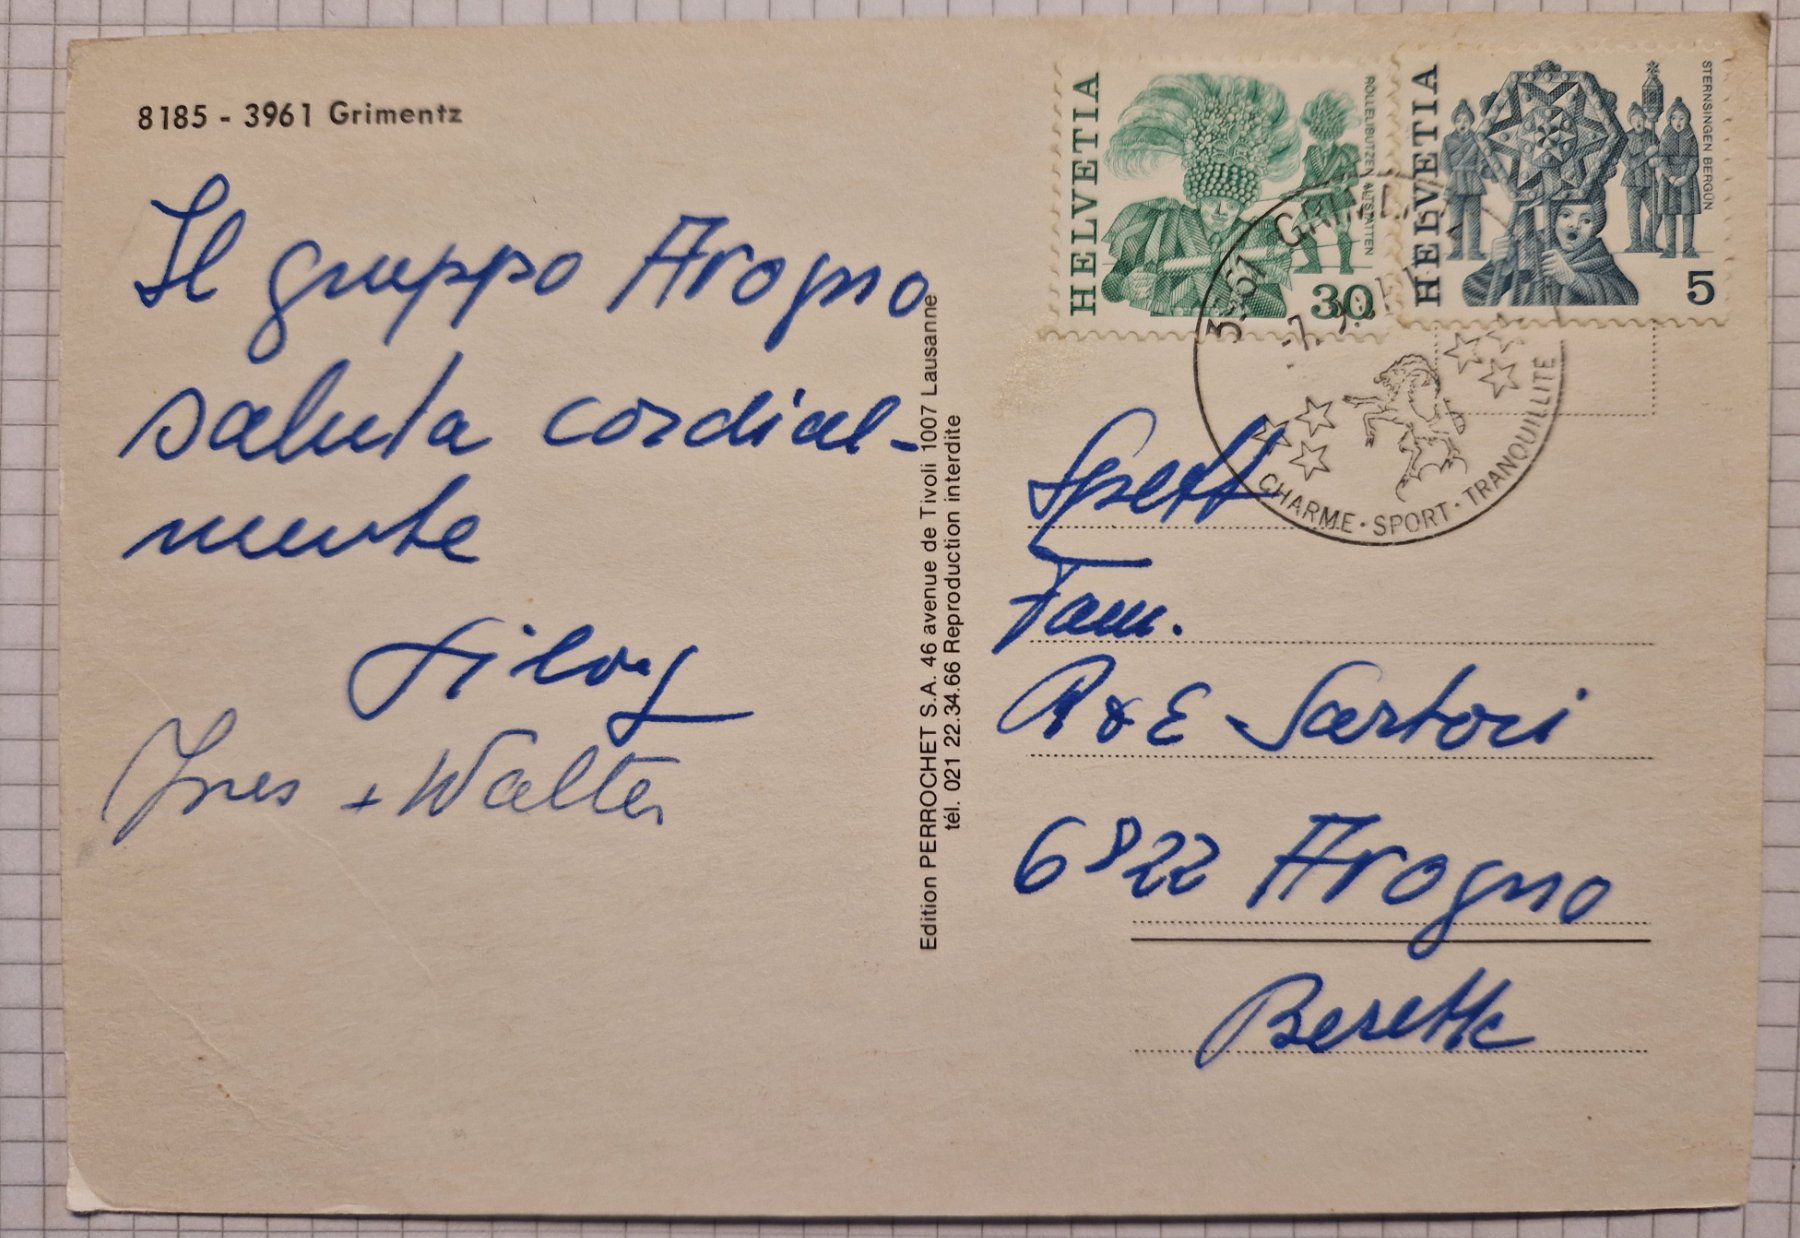 8185 - 3961 Grimentz
Il gruppo Arogno
saluta cordial-
mente
Silvy
Ines + Walter
Edition PERROCHET S.A. 46 avenue de Tivoli 1007 Lausanne
tél. 021 22.34.66 Reproduction interdite
HELVETIA
ROLLELIBUTZEN ALTSTÄTTEN
30
HELVETIA
STERNSINGEN BERGÜN
5
3961
CHARME · SPORT · TRANQUILLITÉ
Spett
Fam.
R & E Sartori
6822 Arogno